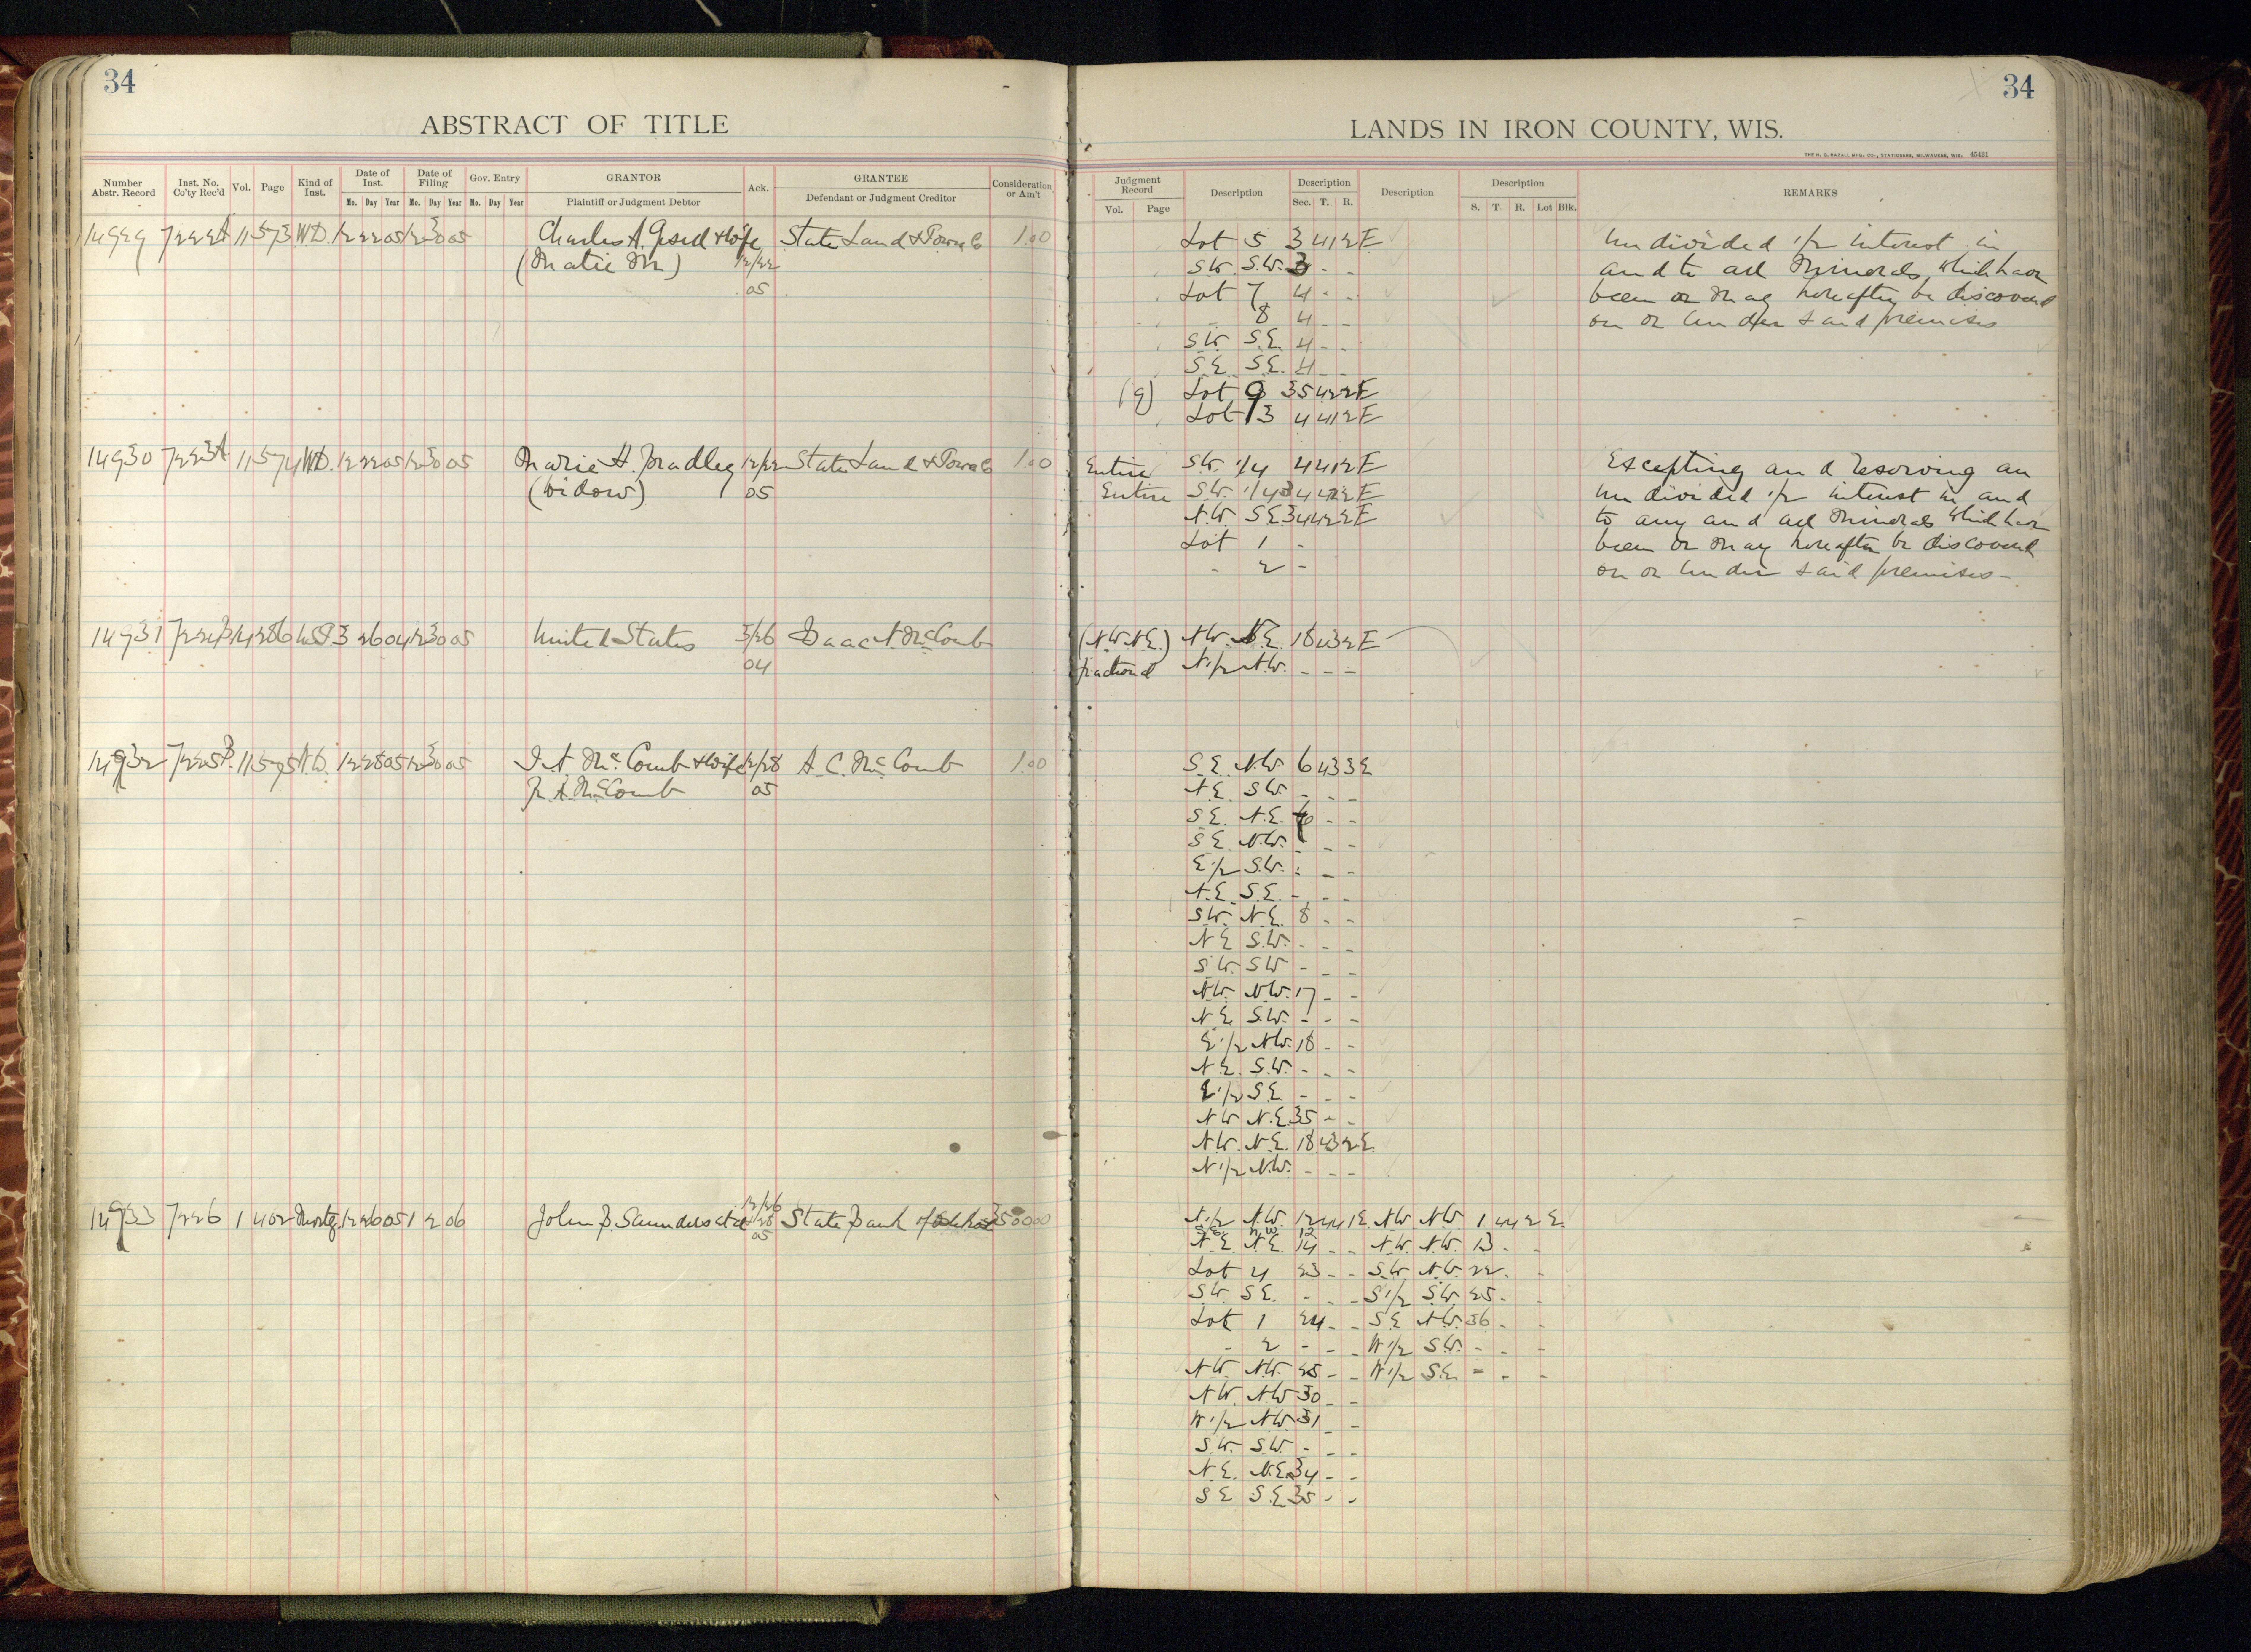 34
ABSTRACT OF TITLE
Number Abstr. Record | Inst. No. Co'ty Rec'd | Vol. | Page | Kind of Inst. | Date of Inst. Mo. Day Year | Date of Filing Mo. Day Year | Gov. Entry Mo. Day Year | GRANTOR Plaintiff or Judgment Debtor | Ack. | GRANTEE Defendant or Judgment Creditor | Consideration or Am't
14929 7222A 11 573 WD. 12 22 05 12 30 05 Charles A. & Wife 12/22 State Land & Co 1.00
(Matie M.) 05
14930 7223A 11 574 WD. 12 22 05 12 30 05 Marie H. Bradley 12/22 State Land & Co 1.00
(Widow) 05
14931 7224 14 286 U.S.P. 3 26 04 12 30 05 United States 3/26 Isaac A. McComb
04
14932 7225 11 575 12 28 05 12 30 05 I. A. McComb & Wife 12/28 A. C. McComb 1.00
McComb 05
14933 7226 1 402 Mortg. 12 26 05 1 2 06 John B. Saunders et al 12/26 State Bank of 3500 00
05
34
LANDS IN IRON COUNTY, WIS.
THE H. G. RAZALL MFG. CO., STATIONERS, MILWAUKEE, WIS. 45431
Judgment Record Vol. Page | Description | Description Sec. T. R. | Description | Description S. T. R. Lot Blk. | REMARKS
Lot 5 3 41 2E Undivided 1/2 interest in
S.W. S.W. 3 - - and to all Minerals which have
Lot 7 4 - - been or may hereafter be discovered
8 4 - - on or under said premises
S.W. S.E. 4 - -
S.E. S.E. 4 - -
(9) Lot 9 35 42 2E
Lot 13 4 41 2E
Entire S.W. 1/4 4 41 2E Excepting and reserving an
Entire S.W. 1/4 34 42 2E undivided 1/2 interest in and
N.W. S.E. 34 42 2E to any and all Minerals which have
Lot 1 - been or may hereafter be discovered
- 2 - on or under said premises -
(N.W. N.E.) N.W. N.E. 18 43 2E
fractional N.1/2 N.W. - - -
S.E. N.W. 6 43 3E
N.E. S.W. - - -
S.E. N.E. - -
S.E. N.W. - - -
E.1/2 S.W. - - -
N.E. S.E. - - -
S.W. N.E. 8 - -
N.E. S.W. - - -
S.W. S.W. - - -
N.W. N.W. 17 - -
N.E. S.W. - - -
E.1/2 N.W. 18 - -
N.E. S.W. - - -
E.1/2 S.E. - - -
N.W. N.E. 35 - -
N.W. N.E. 18 43 2E.
N.1/2 N.W. - - -
N.1/2 N.W. 12 44 1E. N.W. N.W. 1 44 2E.
N.E. N.E. 14 - - N.W. N.W. 13 - -
Lot 4 23 - - S.W. N.W. 22 - -
S.W. S.E. - - - S.1/2 S.W. 25 - -
Lot 1 24 - - S.E. N.W. 36 - -
- 2 - - - W.1/2 S.W. - - -
N.W. N.W. 25 - - W.1/2 S.E. - - -
N.W. N.W. 30 - -
W.1/2 N.W. 31 - -
S.W. S.W. - - -
N.E. N.E. 34 - -
S.E. S.E. 35 - -